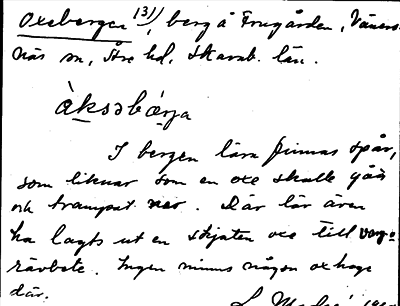 Oxebergen 131), berg å Frugården, Väners-
näs sn, Åse hd, Skarab. län.
àksəbær̨ja
I bergen lära finnas spår,
som liknar som en oxe skulle gått
och trampat ner. Där lär även
ha lagts ut en skjuten oxe till varg=
rävbete. Ingen minns någon oxhage
där.